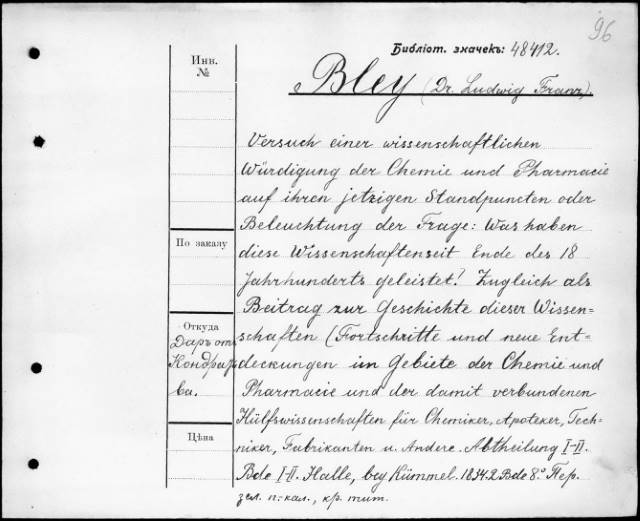 96
Библіот. значекъ: 48412.
Bley (Dr. Ludwig Franz).
Инв.
№
Versuch einer wissenschaftlichen
Würdigung der Chemie und Pharmacie
auf ihren jetzigen Standpuncten oder
Beleuchtung der Frage: Was haben
По заказу
diese Wissenschaftenseit Ende des 18
Jahrhunderts geleistet? Zugleich als
Beitrag zur Geschichte dieser Wissen-
Откуда
schaften (Fortschritte und neue Ent=
Даръ отъ
Кондрар
deckungen im Gebiete der Chemie und
ва.
Pharmacie und der damit verbundenen
Hülfswissenschaften für Chemiker, Apoteker, Tech-
Цѣна
niker, Fabrikanten u. Andere. Abtheilung I-II.
Bde I-II. Halle, bey Kümmel. 1834. 2 Bde 8.° Пер.
зел. п.-кал., кр. тит.